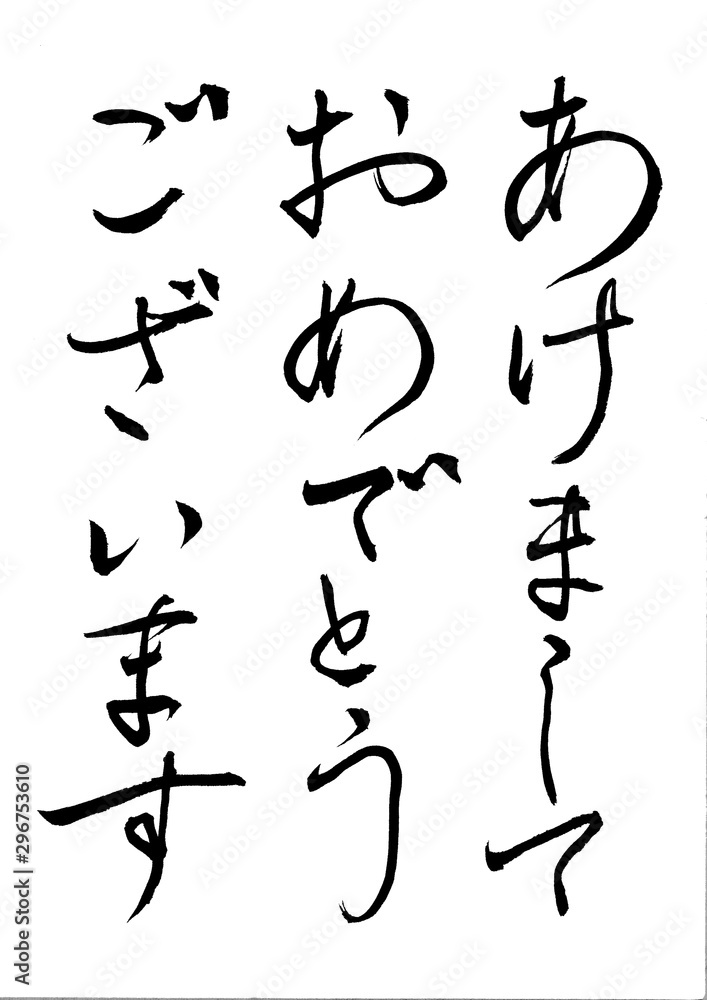 あけまして
おめでとう
ございます
Adobe Stock | #296753610